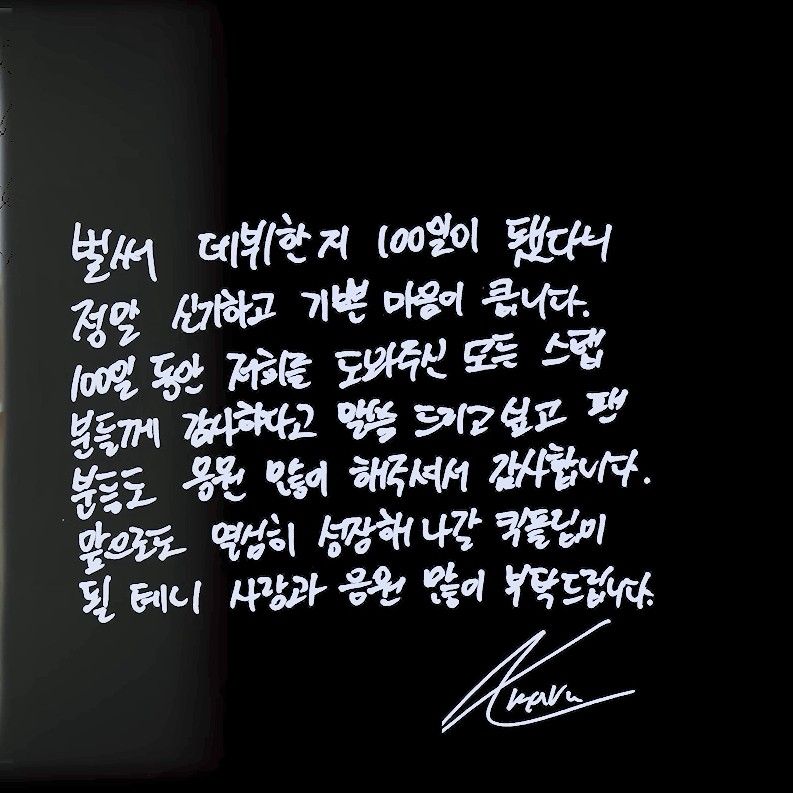 벌써 데뷔한지 100일이 됐다니
정말 신기하고 기쁜 마음이 큽니다.
100일 동안 저희를 도와주신 모든 스탭
분들께 감사하다고 말씀 드리고 싶고 팬
분들도 응원 많이 해주셔서 감사합니다.
앞으로도 열심히 성장해 나갈 킥플립이
될 테니 사랑과 응원 많이 부탁드립니다.
Amaru